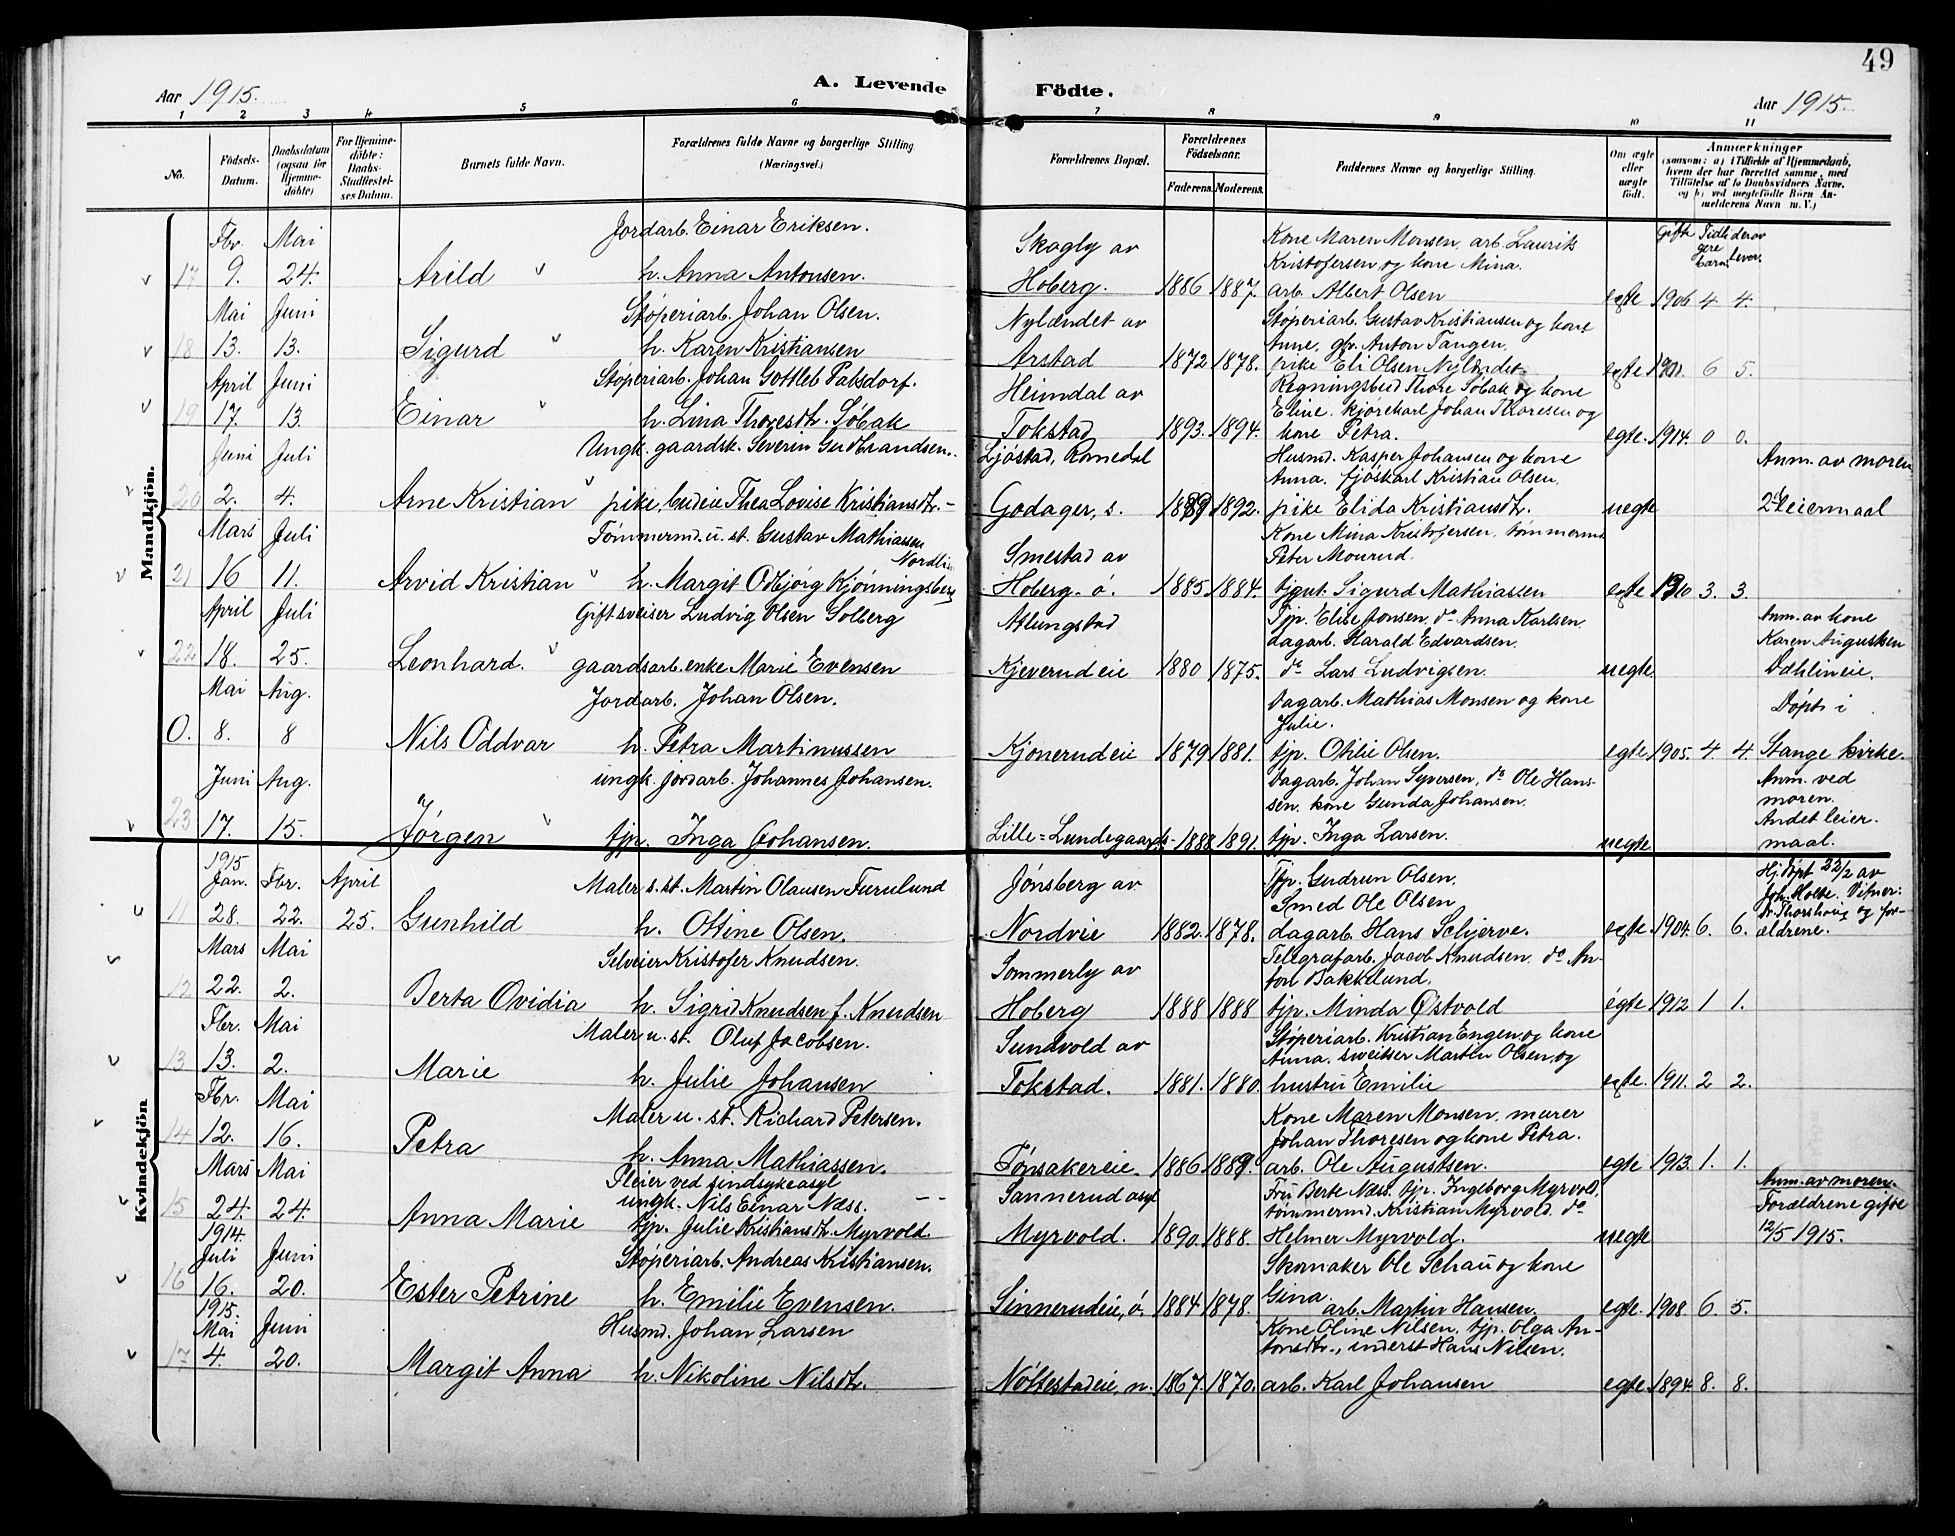 49
Aar 1915.
A. Levende Födte.
Aar 1915.
1 2 3 4 5 6 7 8 9 10 11
No.
Födsels-Datum.
Daabsdatum (ogsaa for Hjemme-döbte)
For Hjemme-döbte: Daabs-Stadfæstel-ses Datum.
Barnets fulde Navn.
Forældrenes fulde Navne og borgerlige Stilling (Næringsvei.)
Forældrenes Bopæl.
Forældrenes Födselsaar.
Faderens. Moderens.
Faddernes Navne og borgerlige Stilling.
Om ægte eller uægte födt.
Anmærkninger (saasom: a) i Tilfælde af Hjemmedaab, hvem der har forrettet samme, med Tilföielse af to Daabsvidners Navne, og b) ved uegtefödte Börn An-melderens Navn m. V.)
Mandkjön.
Gifte Tidligere barn derav lever.
17 Fbr. 9. Mai 24. Arild
Jordarb. Einar Eriksen.
h. Anna Antonsen.
Skogly av Hoberg. 1886 1887.
Kone Maren Monsen, arb. Laurits
Kristofersen og kone Mina.
arb. Albert Olsen
egte 1906 4 4.
18 Mai 13. Juni 13. Sigurd
Støperiarb. Johan Olsen.
h. Karen Kristiansen
Nylændet av Arstad 1872 1878.
Støperiarb. Gustav Kristiansen og kone
Anne, gbr. Anton Tangen,
pike Eli Olsen Nylændet.
egte 1901. 6 5.
19 April 17. Juni 13. Einar
Støperiarb. Johan Gottleb Palsdorf.
h. Lina Thoresdtr. Søbak
Heimdal av Tokstad 1893. 1894.
Regningsbud Thore Søbak og kone
Eline, kjørekarl Johan Thoresen og
kone Petra.
egte. 1914. 0 0.
20 Juni 2. Juli 4. Arne Kristian
Ungk. gaardsk. Severin Gudbrandsen.
pike, budeie Thea Lovise Kristiansdtr.
Ljøstad, Romedal
Godager, s. 1889 1892.
Husmd. Kasper Johansen og kone
Anna. fjøskarl Kristian Olsen,
pike Elida Kristiansdtr.
uegte
Anm. av moren
2det leiermaal
21 Mars 16 Juli 11. Arvid Kristian
Tømmermd. u. st. Gustav Mathiassen Nordli
h. Margit Odbjørg Kjønningsberg
Smestad av Hoberg. ö. 1885. 1884.
Kone Mina Kristofersen. tømmermd
Peter Mourud.
tjgut. Sigurd Mathiassen
egte 1910 3. 3.
22 April 18. Juli 25. Leonhard.
Gift sveiser Ludvig Olsen Solberg
gaardsarb. enke Marie Evensen
Atlungstad
Kjeverudeie 1880 1875.
Tjp. Elise Jonsen, do Anna Karlsen
dagarb. Harald Edvardsen.
do Lars Ludvigsen.
uegte
Anm. av kone
Karen Augustsen
Dæhlineie.
0. Mai 8. Aug. 8 Nils Oddvar
Jordarb. Johan Olsen.
h. Petra Martinussen
Kjonerudeie 1879 1881.
Dagarb. Mathias Monsen og kone
Julie.
tjp. Otilie Olsen.
egte 1905. 4 4
Döpt i
Stange kirke.
23 Juni 17. Aug. 15. Jørgen
ungk. jordarb. Johannes Johansen.
tjp. Inga Johansen.
Lille=Lundegaard 1888 1891.
Dagarb. Johan Syversen, do Ole Han-
sen, kone Gunda Johansen.
tjp. Inga Larsen.
uegte
Anm. ved
moren.
Andet leier.
maal.
Kvindekjön
11 1915 Jan. 28. Fbr. 22. April 25. Gunhild
Maler s. st. Martin Olausen Furulund
h. Ottine Olsen.
Jønsberg av Nordvie 1882. 1878.
Tjp. Gudrun Olsen,
Smed Ole Olsen
dagarb. Hans Schjerve.
egte 1904. 6. 6.
Hj.döpt 22/2 av
Joh. Holte. Vitner:
Thorshaug og for-
ældrene.
12 Mars 22. Mai 2. Berta Ovidia
Selveier Kristofer Knudsen.
h. Sigrid Knudsen f. Knudsen
Sommerly av Hoberg 1888 1888
Telegrafarb. Jacob Knudsen. do An-
ton Bakkelund.
tjp. Minda Østvold
egte 1912 1 1.
13 Fbr. 13. Mai 2. Marie
Maler u. st. Oluf Jacobsen.
h. Julie Johansen
Sundvold av Tokstad. 1881. 1880.
Støperiarb. Kristian Engen og kone
Anna. sveitser Martin Olsen og
hustru Emilie
egte. 1911. 2 2.
14 Fbr. 12. Mai 16. Petra
Maler u. st. Richard Petersen.
h. Anna Mathiassen.
Tønsakereie. 1886 1889.
Kone Maren Monsen. murer
Johan Thoresen og kone Petra.
arb. Ole Augustsen.
egte 1913. 1. 1.
15 Mars 24. Mai 24. Anna Marie
Pleier ved sindsykeasyl
ungk. Nils Einar Næss.
tjp. Julie Kristiansdtr. Myrvold.
Sannerud asyl
Myrvold. 1890. 1888.
Fru Berte Næss. tjp. Ingeborg Myrvold,
tømmermd. Kristian Myrvold. do
Helmer Myrvold.
uegte
Anm. av moren.
Forældrene gifte
12/5 1915.
16 1914. Juli 16. Juni 20. Ester Petrine
Støperiarb. Andreas Kristiansen.
h. Emilie Evensen.
Sinnerudeie, ö. 1884. 1878.
Skomaker Ole Schau og kone
Gina. arb. Martin Hansen.
egte. 1908. 6 5.
17 1915. Mai 4. Juni 20. Margit Anna
Husmd. Johan Larsen
h. Nikoline Nilsdtr.
Nøttestadeie, n. 1867. 1870.
Kone Oline Nilsen, tjp. Olga An-
tonsdtr., inderst Hans Nilsen.
arb. Karl Johansen
egte. 1894. 8. 8.